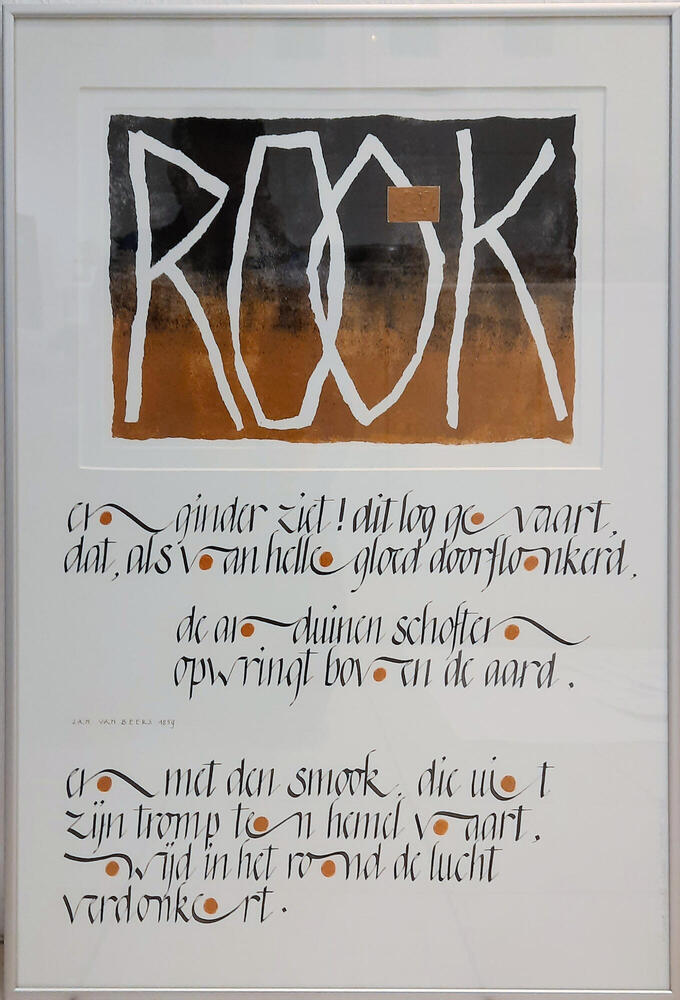 ROOK
en ginder ziet! dit log gevaart,
dat, als van helle gloed doorflonkerd,
de arduinen schoften
opwringt boven de aard.
JAN VAN BEERS 1859
en met den smook, die uit
zijn tromp ten hemel vaart,
wijd in het rond de lucht
verdonkert.